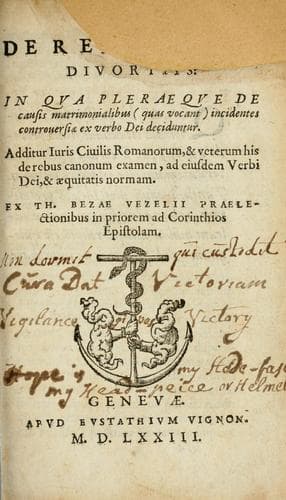 DE RE
DIVORTIIS:
IN QVA PLERAEQVE DE
causis matrimonialibus (quas vocant) incidentes
controversiæ ex verbo Dei deciduntur.
Additur Iuris Ciuilis Romanorum, & veterum his
de rebus canonum examen, ad eiusdem Verbi
Dei, & æquitatis normam.
EX TH. BEZAE VEZELII PRAELE-
ctionibus in priorem ad Corinthios
Epistolam.
Non dormit qui custodit
Cura Dat Victoriam
Vigilance Victory
Hope is my Hode-fast
my Head-peice or Helmet
GENEVÆ.
APVD EVSTATHIVM VIGNON.
M. D. LXXIII.